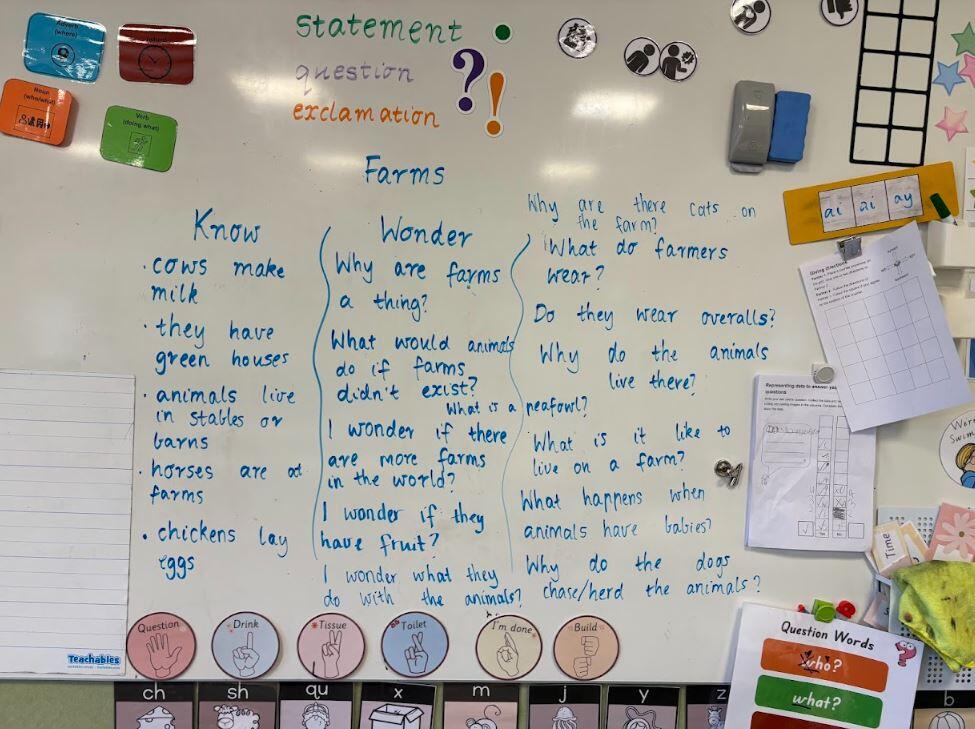 Adverb
(where)
Noun
(who/what)
Verb
(doing what)
statement .
question ?
exclamation !
Farms
Know
· cows make
milk
· they have
green houses
· animals live
in stables or
barns
· horses are at
farms
· chickens lay
eggs
Wonder
Why are farms
a thing?
What would animals
do if farms
didn't exist?
What is a peafowl?
I wonder if there
are more farms
in the world?
I wonder if they
have fruit?
I wonder what they
do with the animals?
Why are there cats on
the farm?
What do farmers
wear?
Do they wear overalls?
Why do the animals
live there?
What is it like to
live on a farm?
What happens when
animals have babies?
Why do the dogs
chase/herd the animals?
ai ai ay
Giving Directions
Representing data to answer
questions
Time
Teachables
Question
Drink
Tissue
Toilet
I'm done
Build
Question Words
who?
what?
ch sh qu x m j y z b